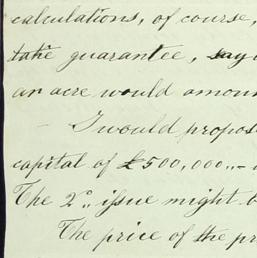 calculations, of course,
take guarantee, say
an acre would amoun
- I would propos
capital of £500,000.-
The 2º. issue might b
The price of the pr